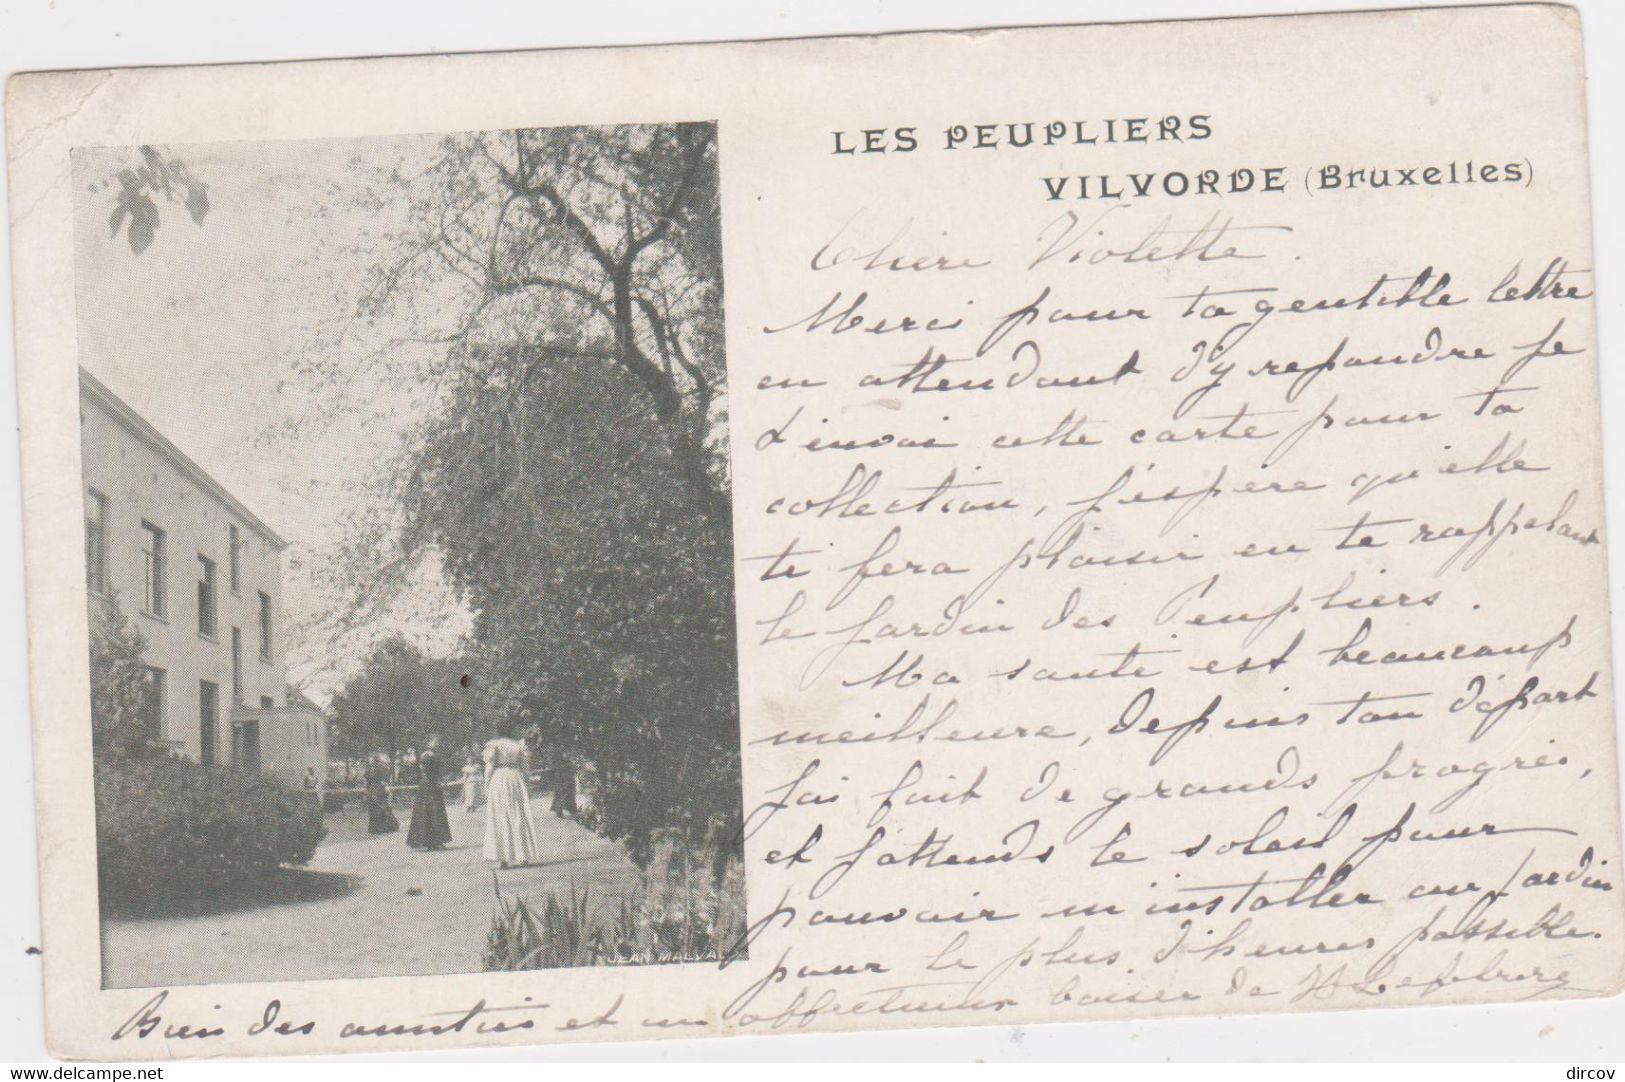 LES PEUPLIERS
VILVORDE (Bruxelles)
Chère Violette.
Merci pour ta gentille lettre
en attendant d'y repondre je
t'envoi cette carte pour ta
collection, j'éspère qu'elle
te fera plaisir en te rappelant
le jardin des Peupliers.
Ma santé est beaucoup
meilleure, depuis ton départ
j'ai fait de grands progrès,
et j'attends le soleil pour
pouvoir m'installer au jardin
pour le plus d'heures possible.
Bien des amitiés et un affectueux baiser de H Lefebvre
JEAN MALVA
www.delcampe.net
dircov